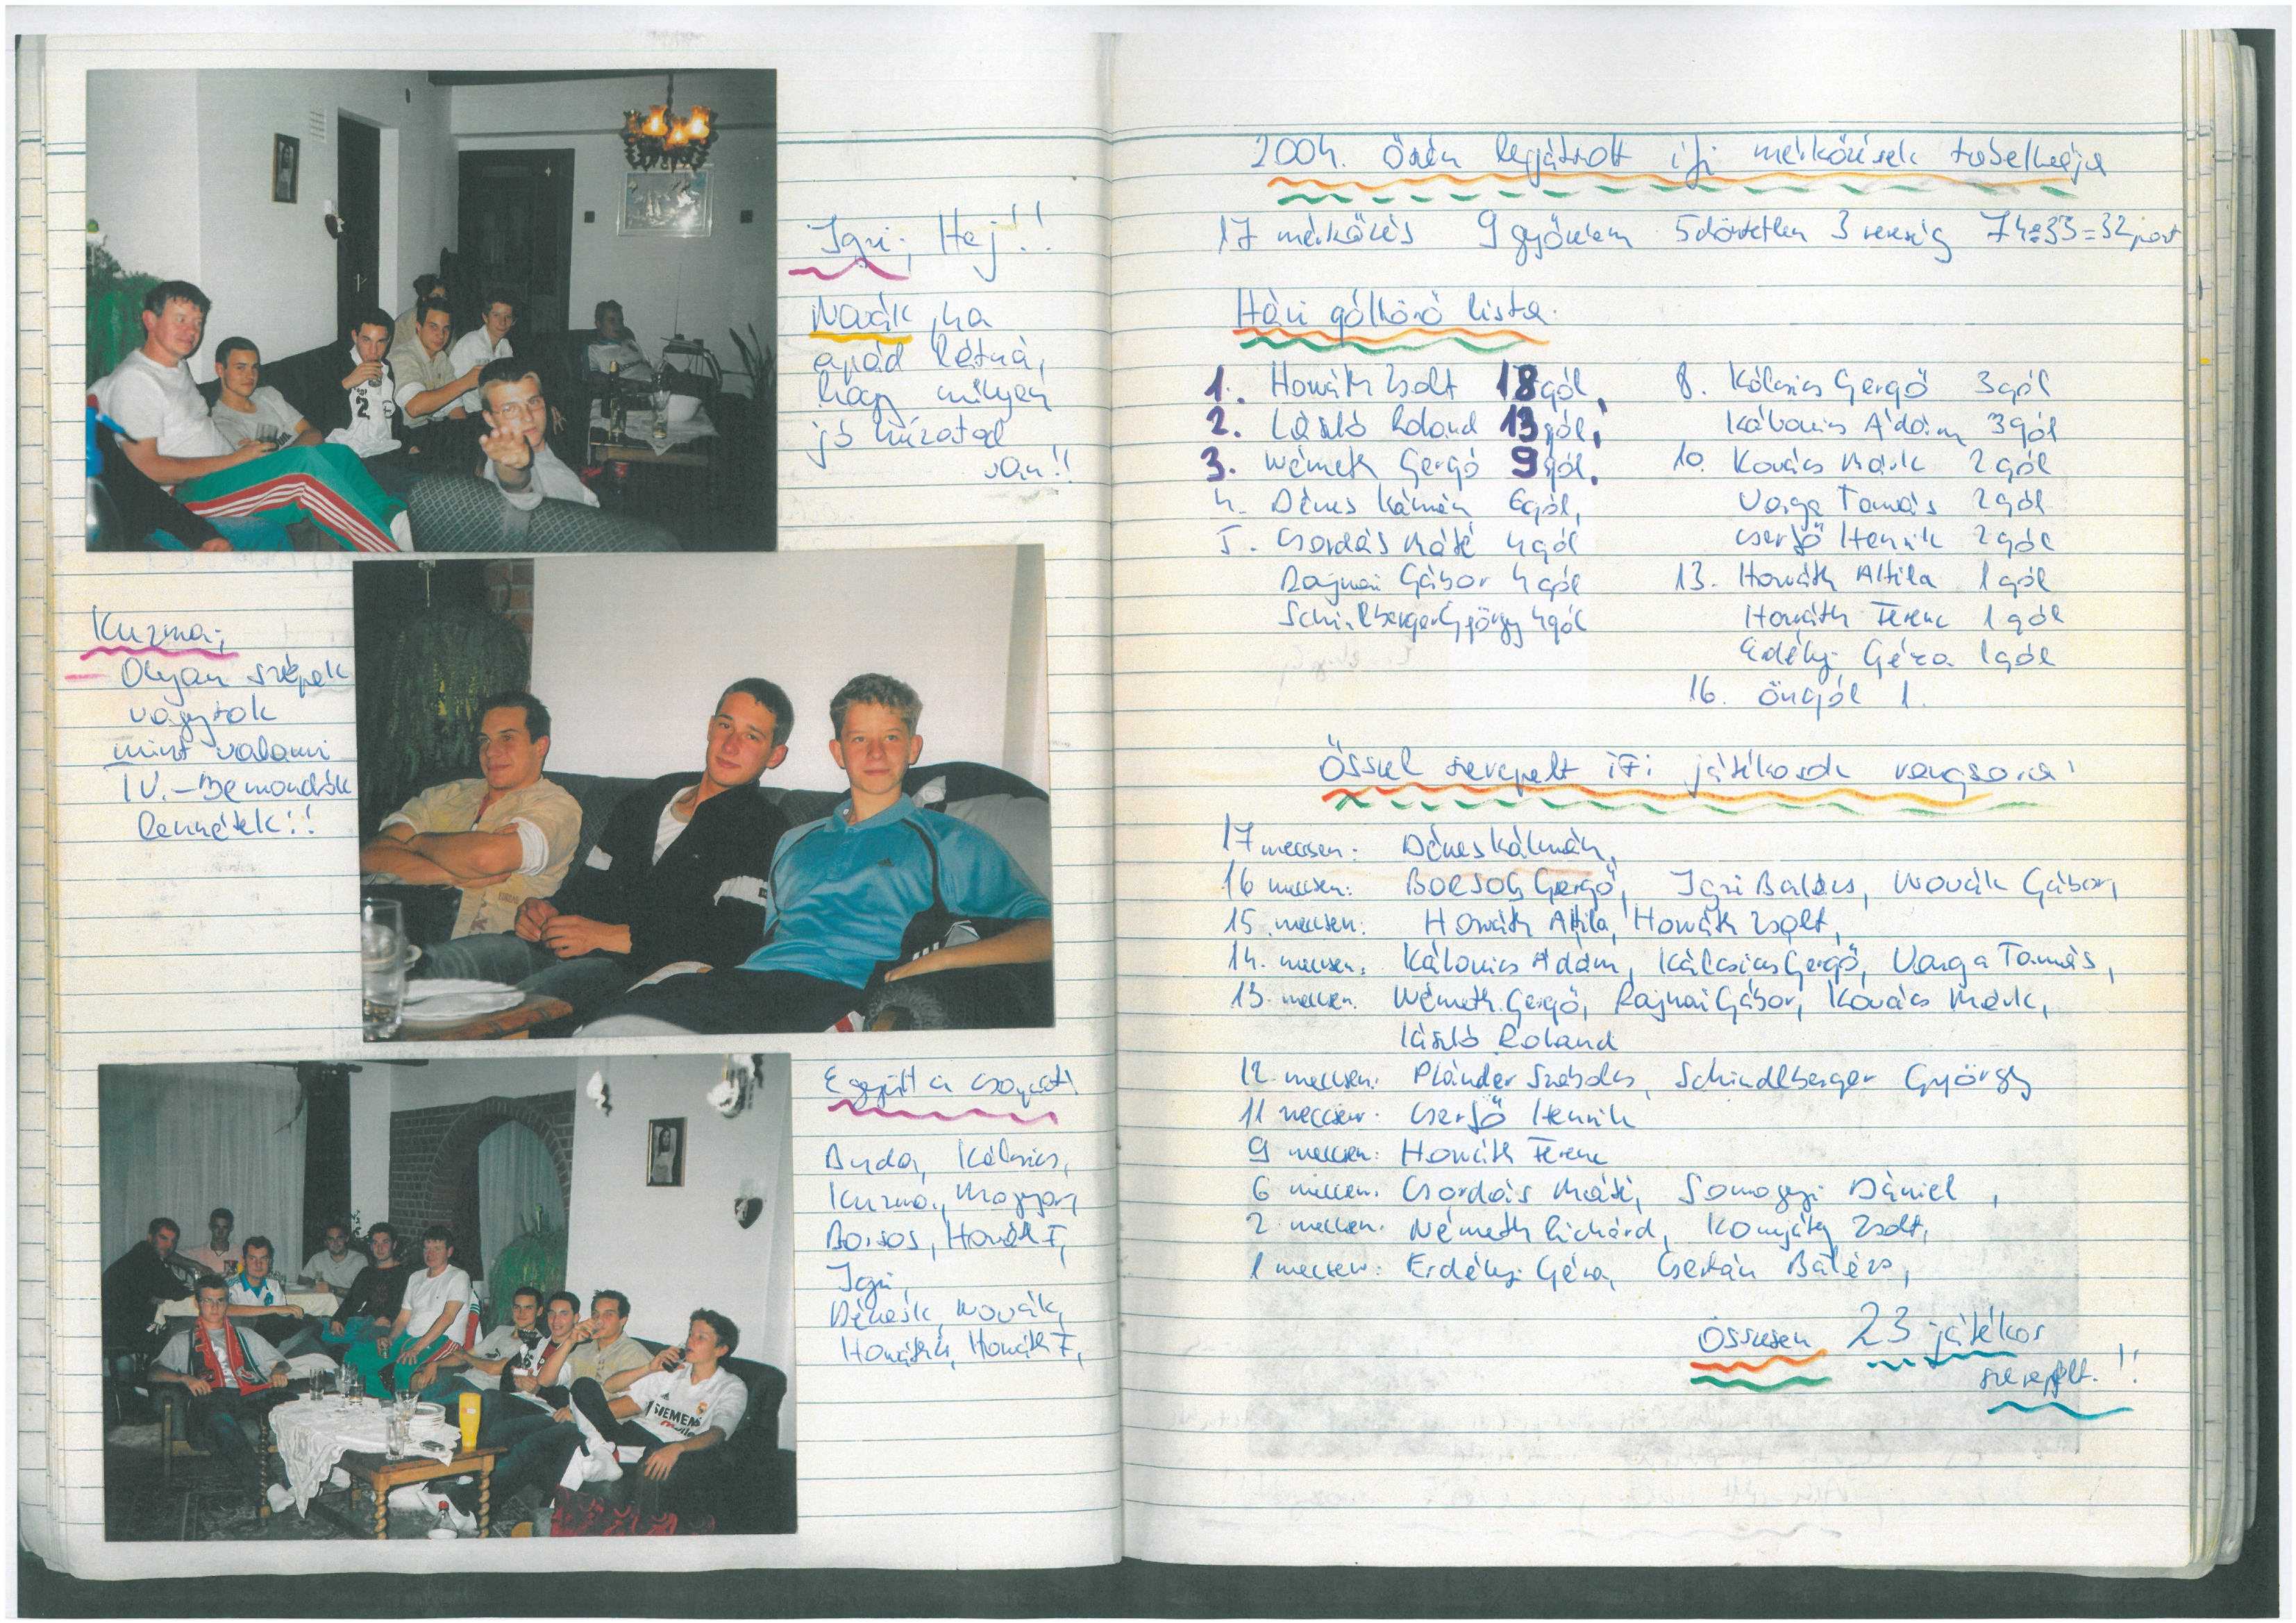 Igri; Hej!!
Novák, ha
apád látná,
hogy milyen
jó húzatod
van!!
Kuzma;
- Olyan szépek
vagytok
mint valami
TV.-Bemondók
lennétek!!
Együtt a csapat!
Buda, Kálcsics,
Kuzma, Magyar,
Borsos, Horváth F,
Igri,
Dénesk, Novák,
Horváth, Horváth F,
SIEMENS
mobile
2004. őszén lejátszott ifi mérkőzések tabellája
17 mérkőzés 9 győzelem 5 döntetlen 3 vereség 74:33=32 pont
Házi góllövő lista.
1. Horváth Zsolt 18 gól,
2. László Roland 13 gól,
3. Németh Gergő 9 gól,
4. Dénes Kálmán 6 gól,
5. Csordás Máté 4 gól
Rajnai Gábor 4 gól
Schindlberger György 4 gól
8. Kálcsics Gergő 3 gól
Kálovics Ádám 3 gól
10. Kovács Márk 2 gól
Varga Tamás 2 gól
Cserfő Henrik 2 gól
13. Horváth Attila 1 gól
Horváth Ferenc 1 gól
Erdélyi Géza 1 gól
16. öngól 1.
Ősszel szerepelt ifi játékosok rangsora!
17 meccsen: Dénes Kálmán,
16 meccsen: Borsos Gergő, Igri Balázs, Novák Gábor,
15. meccsen: Horváth Attila, Horváth Zsolt,
14. meccsen: Kálovics Ádám, Kálcsics Gergő, Varga Tamás,
13. meccsen. Németh Gergő, Rajnai Gábor, Kovács Márk,
László Roland
12. meccsen: Plánder Szabolcs, Schindlberger György
11 meccsen: Cserfő Henrik
9 meccsen: Horváth Ferenc
6 meccsen: Csordás Máté, Somogyi Dániel,
2 meccsen: Németh Richárd, Komjáty Zsolt,
1 meccsen: Erdélyi Géza, Csertán Balázs,
Összesen 23 játékos
szerepelt.!!